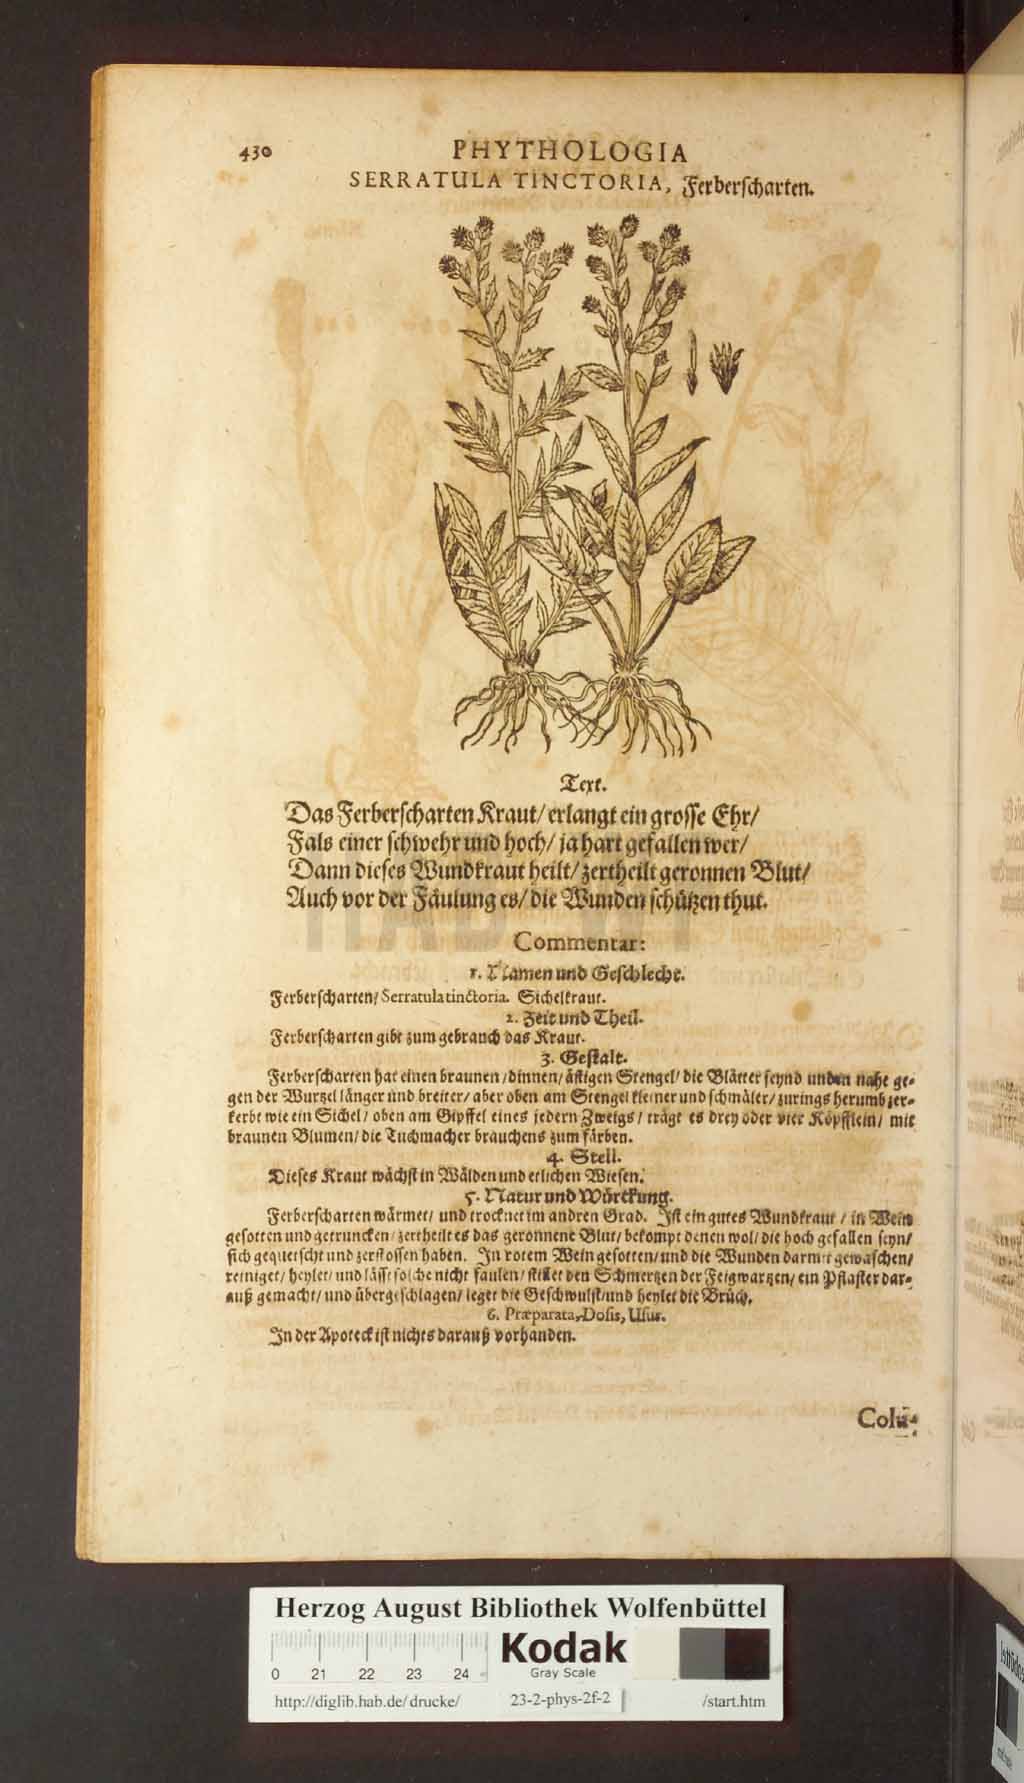 430
PHYTHOLOGIA
SERRATULA TINCTORIA, Ferberscharten.
Text.
Das Ferberscharten Kraut/ erlangt ein grosse Ehr/
Fals einer schwehr und hoch/ ja hart gefallen wer/
Dann dieses Wundkraut heilt/ zertheilt geronnen Blut/
Auch vor der Fäulung es/ die Wunden schützen thut.
Commentar:
1. Namen und Geschlecht.
Ferberscharten/ Serratula tinctoria. Sichelkraut.
2. Zeit und Theil.
Ferberscharten gibt zum gebrauch das Kraut.
3. Gestalt.
Ferberscharten hat einen braunen/ dinnen/ ästigen Stengel/ die Blätter seynd unden nahe ge-
gen der Wurzel länger und breiter/ aber oben am Stengel kleiner und schmäler/ zurings herumb zer-
kerbt wie ein Sichel/ oben am Gipffel eines jedern Zweigs/ trägt es drey oder vier Köpfflein/ mit
braunen Blumen/ die Tuchmacher brauchens zum färben.
4. Stell.
Dieses Kraut wächst in Wälden und etlichen Wiesen.
5. Natur und Würckung.
Ferberscharten wärmet/ und trocknet im andren Grad. Ist ein gutes Wundkraut/ in Wein
gesotten und getruncken/ zertheilt es das geronnene Blut/ bekompt denen wol/ die hoch gefallen seyn/
sich gequetscht und zerstossen haben. In rotem Wein gesotten/ und die Wunden darmit gewaschen/
reiniget/ heylet/ und lässt solche nicht faulen/ stillet den Schmertzen der Feigwartzen/ ein Pflaster dar-
auß gemacht/ und übergeschlagen/ leget die Geschwulst/ und heylet die Brüch.
6. Præparata, Dosis, Usus.
In der Apoteck ist nichts darauß vorhanden.
Colu-
Herzog August Bibliothek Wolfenbüttel
Kodak
Gray Scale
0 21 22 23 24
http://diglib.hab.de/drucke/ 23-2-phys-2f-2 /start.htm